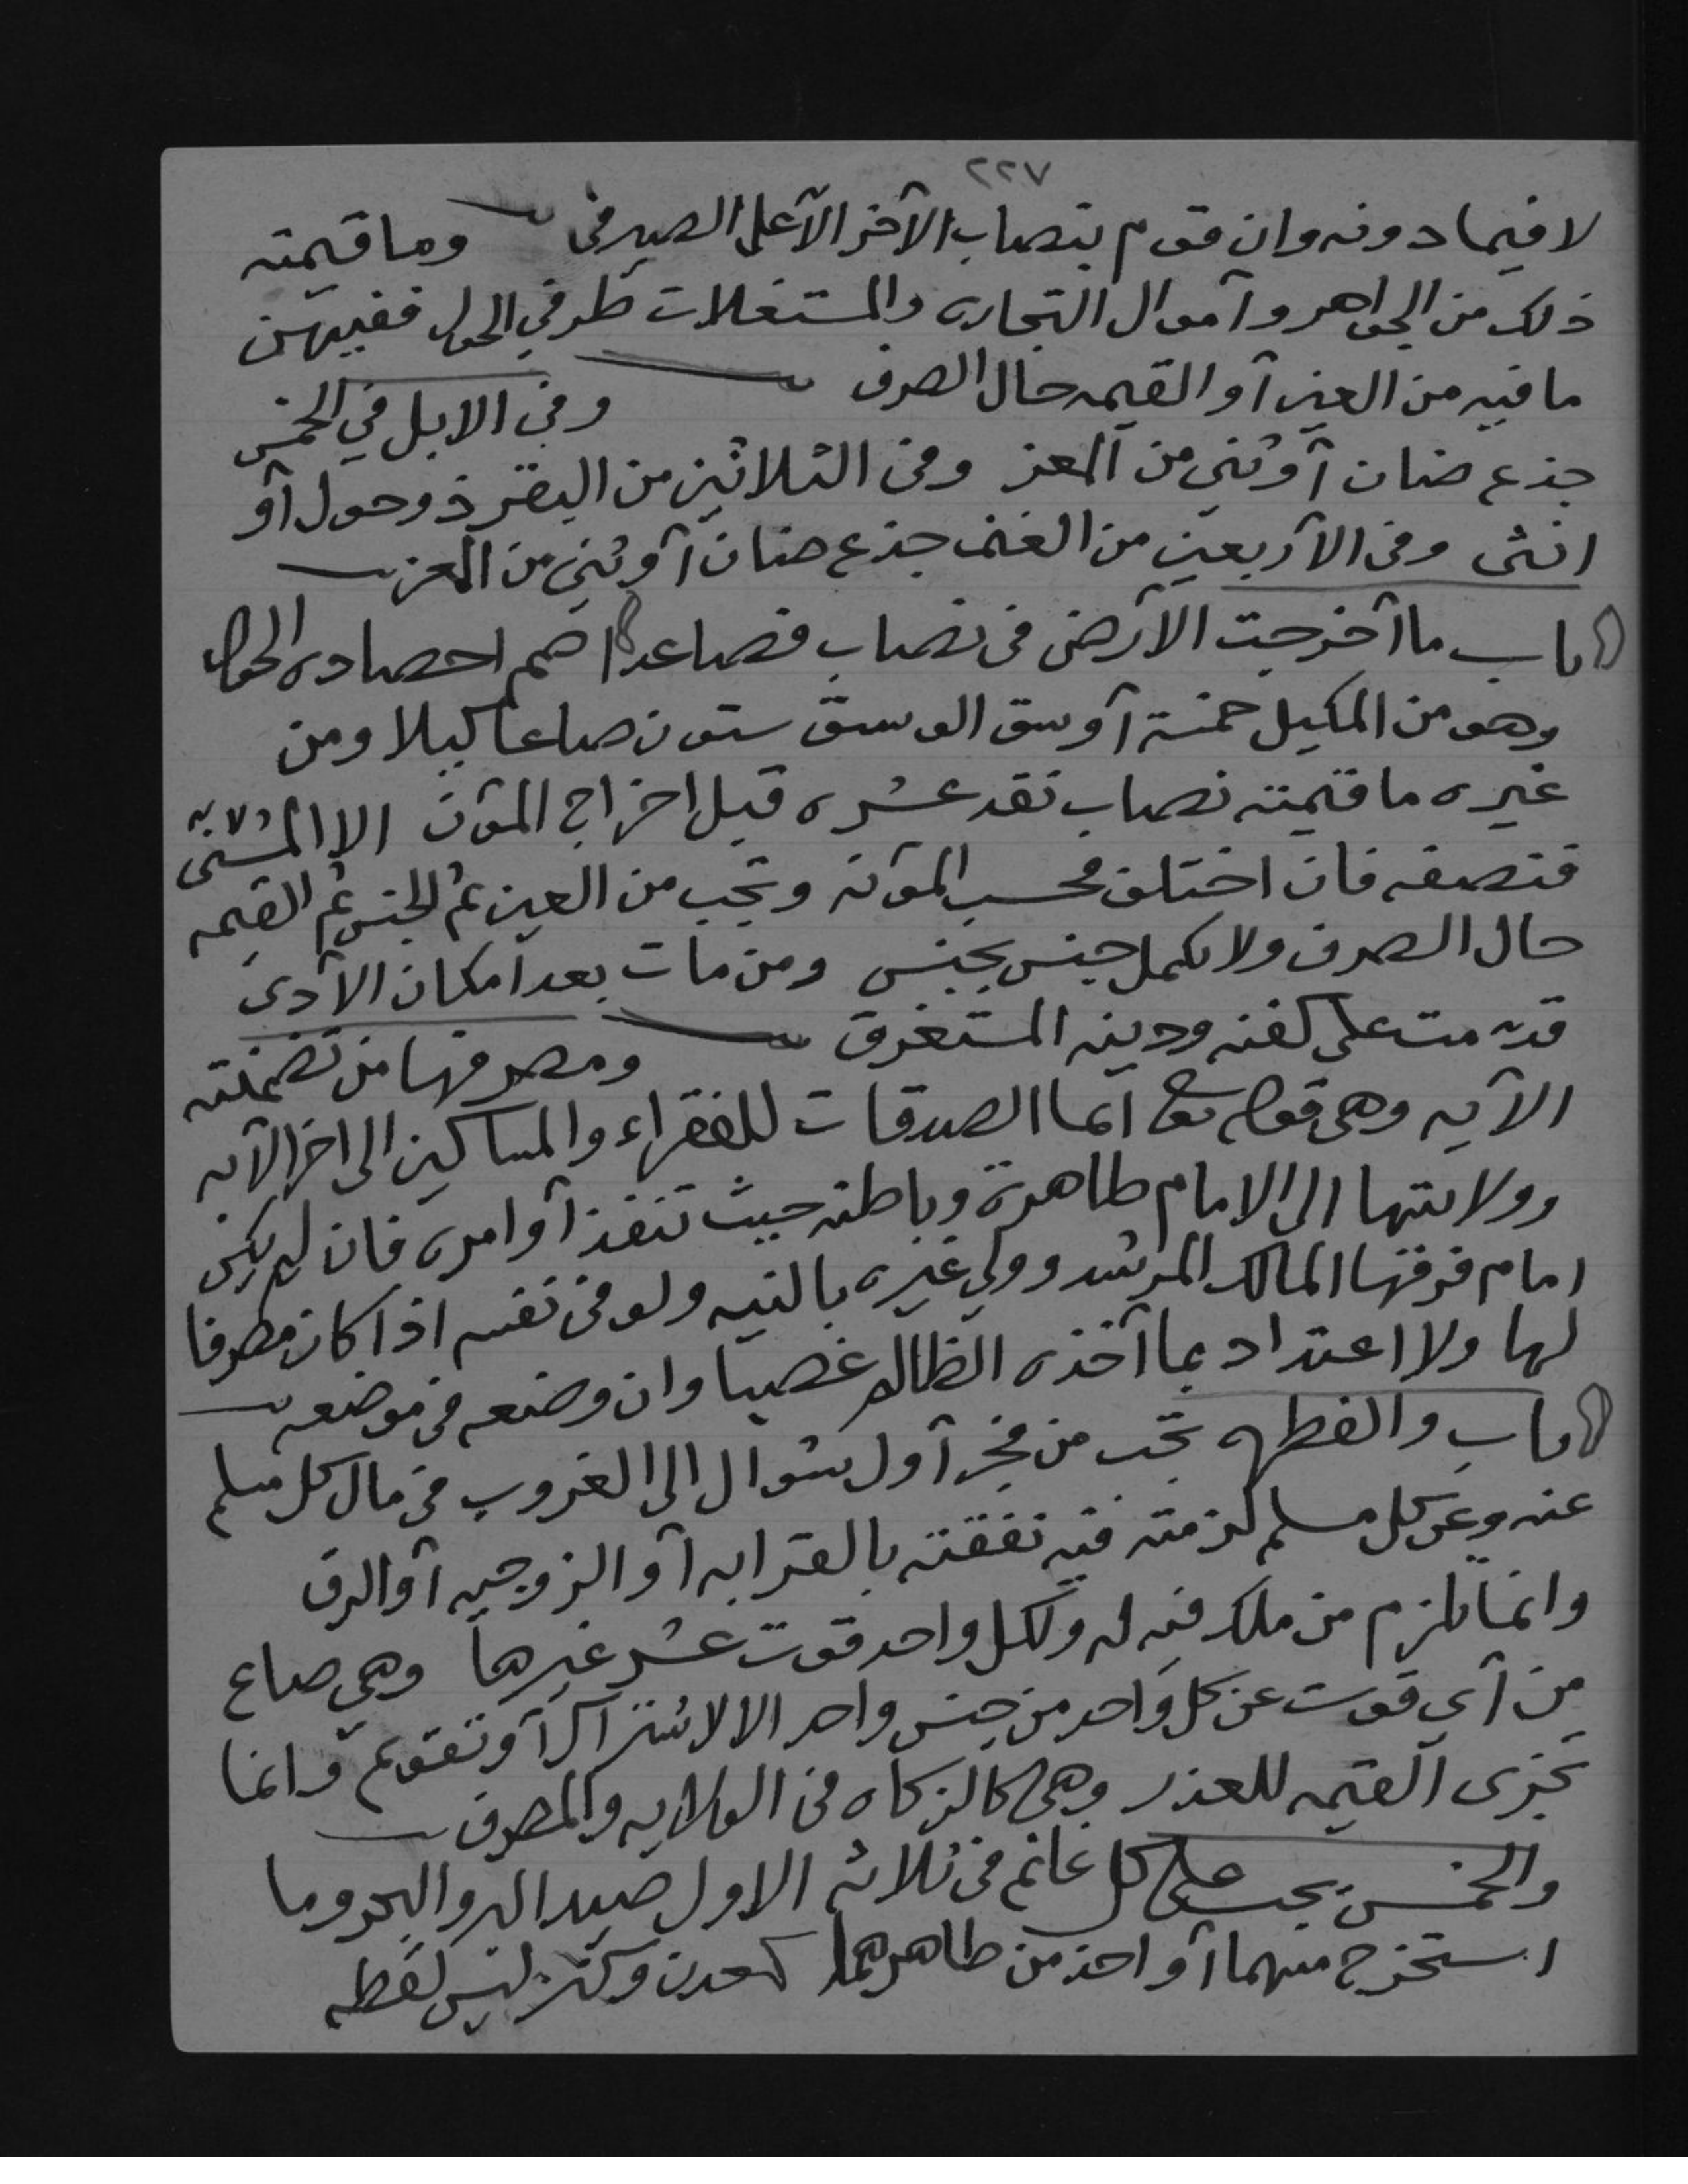 ٢٢٧
لا فيما دونه وان قوم بنصاب الآخر الا على الصيرفى وما قيمته
ذلك من الجواهر وآموال التجاره والمستغلات طرفي الحول ففيهن
ما فيه من العين آو القيمه حال الصرف وفى الابل في الخمس
جذع ضان آو ثني من المعز وفى الثلاثين من البقر ذو حول آو
انثى وفى الآربعين من الغنم جذع ضان آو ثني من المعز
باب ما آخرجت الآرض فى نصاب فصاعدا ضم احصاده الحول
وهو من المكيل خمسة آوسق الوسق ستون صاعا كيلا ومن
غيره ما قيمته نصاب نقد عشره قبل اخراج المؤن الا المسنى
فنصفه فان اختلف فحسب المؤنه وتجب من العين ثم الجنس ثم القيمه
حال الصرف ولا يكمل جنس بجنس ومن مات بعد امكان الآدى
قدمت على كفنه ودينه المستغرق ومصرفها من تضمنته
الآيه وهى قوله تعا انما الصدقات للفقراء والمساكين الى اخر الآيه
وولايتها الى الامام ظاهرة وباطنه حيث تنفذ آوامره فان لم يكن
امام فرقها المالك المرشد وولي غيره بالنيه ولو فى نفسه اذا كان مصرفا
لها ولا اعتداد بما آخذه الظالم غصبا وان وضعه فى موضعه
باب والفطره تجب من فجر آول شوال الى الغروب فى مال كل مسلم
عنه وعن كل مسلم لزمته فيه نفقته بالقرابه آو الزوجيه آو الرق
وانما تلزم من ملك فيه له ولكل واحد قوت عشر غيرها وهي صاع
من آي قوت عن كل واحد من جنس واحد الا لاشتراك آو تقويم وانما
تجزى القيمه للعذر وهى كالزكاه فى الولايه والمصرف
والخمس يجب على كل غانم فى ثلاثه الاول صيد البر والبحر وما
استخرج منهما آو اخذ من ظاهرهما كمعدن وكنز ليس لقطه